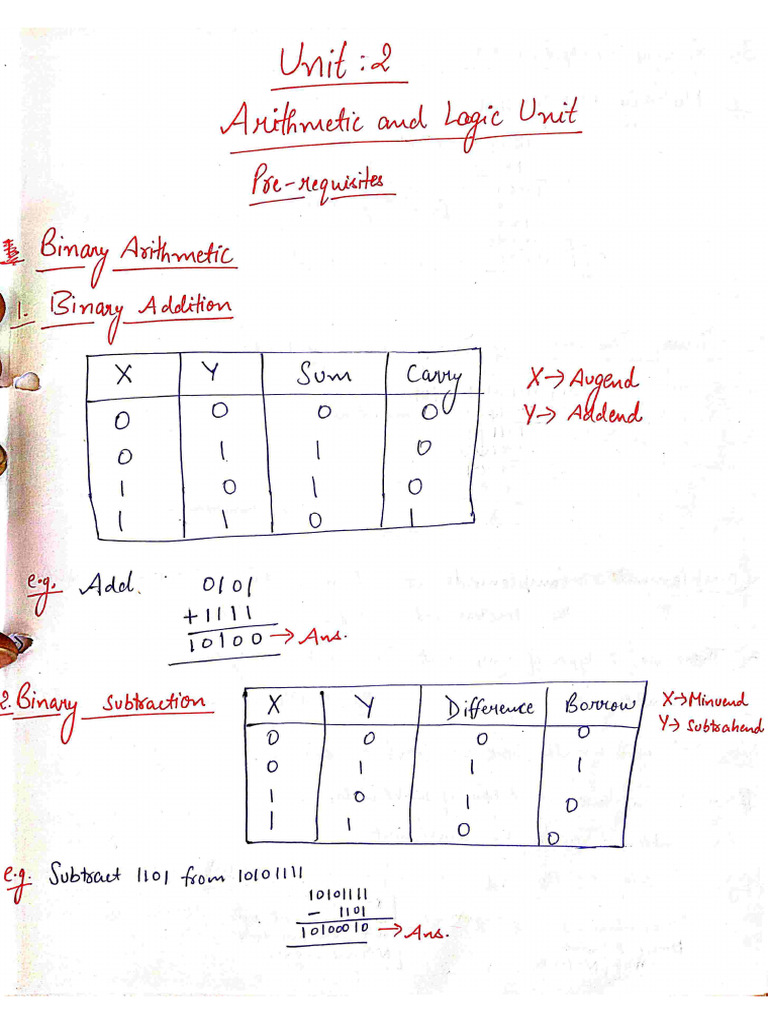 Unit : 2
Arithmetic and Logic Unit
Pre-requisites
Binary Arithmetic
1. Binary Addition
X Y Sum Carry
0 0 0 0
0 1 1 0
1 0 1 0
1 1 0 1
X→ Augend
Y→ Addend
e.g. Add. 0101
+1111
10100 → Ans.
2. Binary Subtraction
X Y Difference Borrow
0 0 0 0
0 1 1 1
1 0 1 0
1 1 0 0
X→Minuend
Y→ Subtrahend
e.g. Subtract 1101 from 10101111
10101111
- 1101
10100010 → Ans.